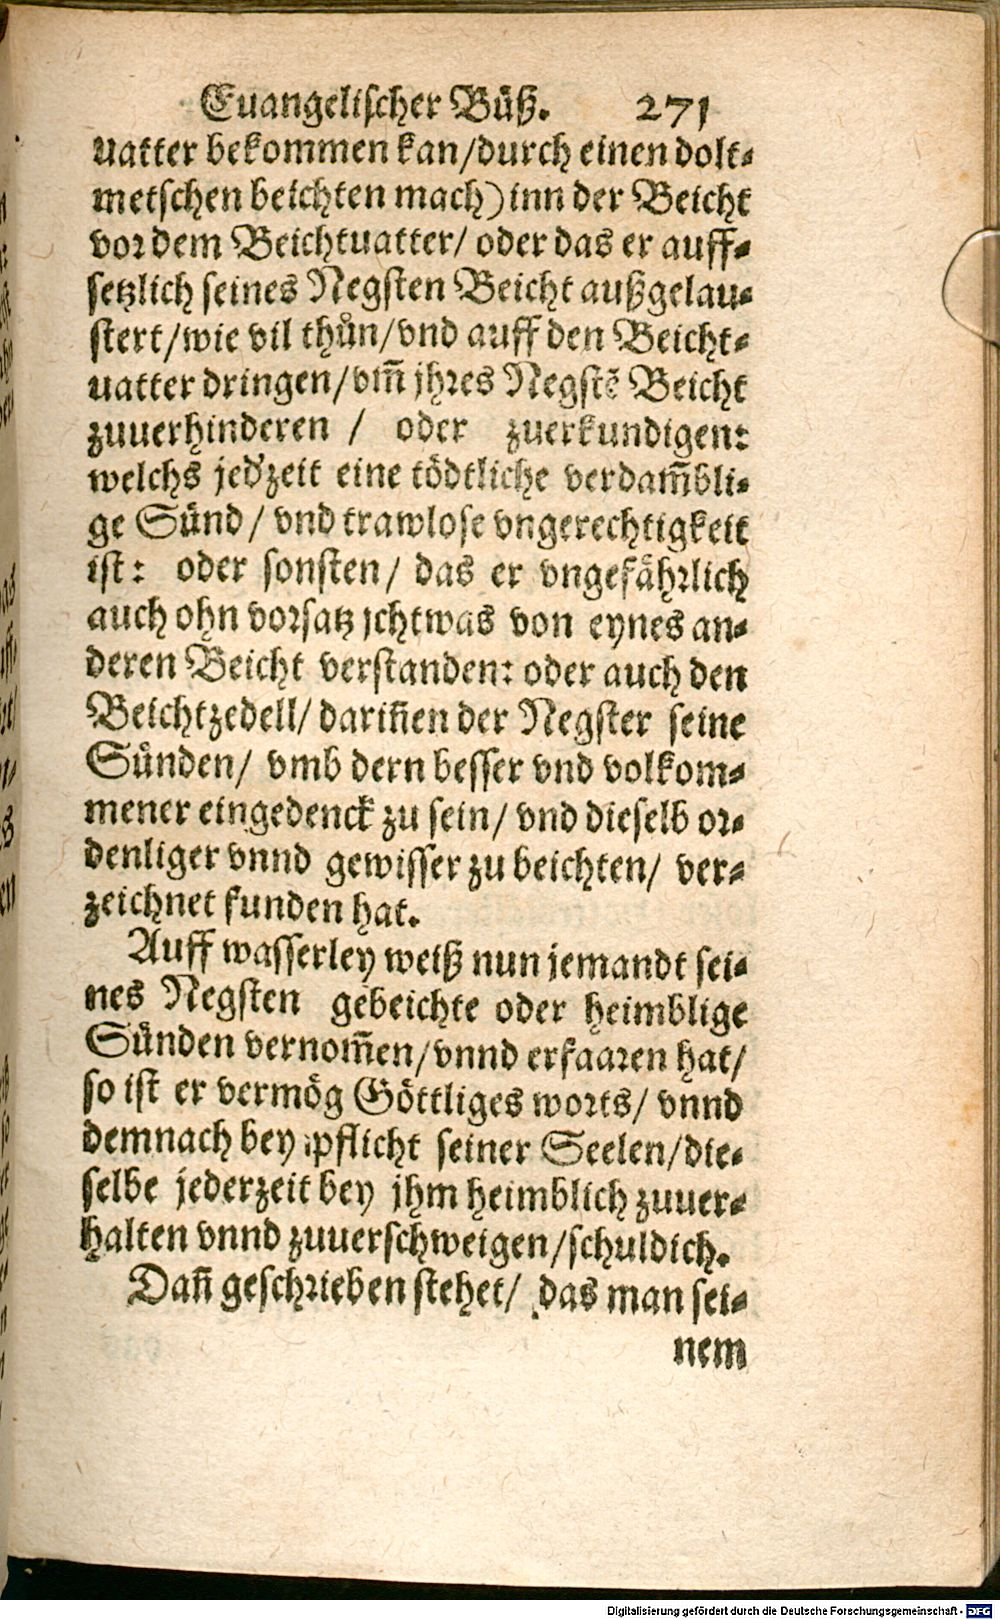 Euangelischer Büß. 271
uatter bekommen kan/durch einen dolt⸗
metschen beichten mach) inn der Beicht
vor dem Beichtuatter/ oder das er auff⸗
setzlich seines Negsten Beicht außgelau⸗
stert/wie vil thůn/vnd auff den Beicht⸗
uatter dringen/vm̃ jhres Negstẽ Beicht
zuuerhinderen / oder zuerkundigen:
welchs jed'zeit eine tödtliche verdam̃bli⸗
ge Sünd/ vnd trawlose vngerechtigkeit
ist: oder sonsten/ das er vngefährlich
auch ohn vorsatz jchtwas von eynes an⸗
deren Beicht verstanden: oder auch den
Beichtzedell/ dariñen der Negster seine
Sünden/ vmb dern besser vnd volkom⸗
mener eingedenck zu sein/ vnd dieselb or⸗
denliger vnnd gewisser zu beichten/ ver⸗
zeichnet funden hat.
Auff wasserley weiß nun jemandt sei⸗
nes Negsten gebeichte oder heimblige
Sünden vernom̃en/vnnd erfaaren hat/
so ist er vermög Göttliges worts/ vnnd
demnach bey pflicht seiner Seelen/die⸗
selbe jederzeit bey jhm heimblich zuuer⸗
halten vnnd zuuerschweigen/schuldich.
Dañ geschrieben stehet/ das man sei⸗
nem
Digitalisierung gefördert durch die Deutsche Forschungsgemeinschaft - DFG